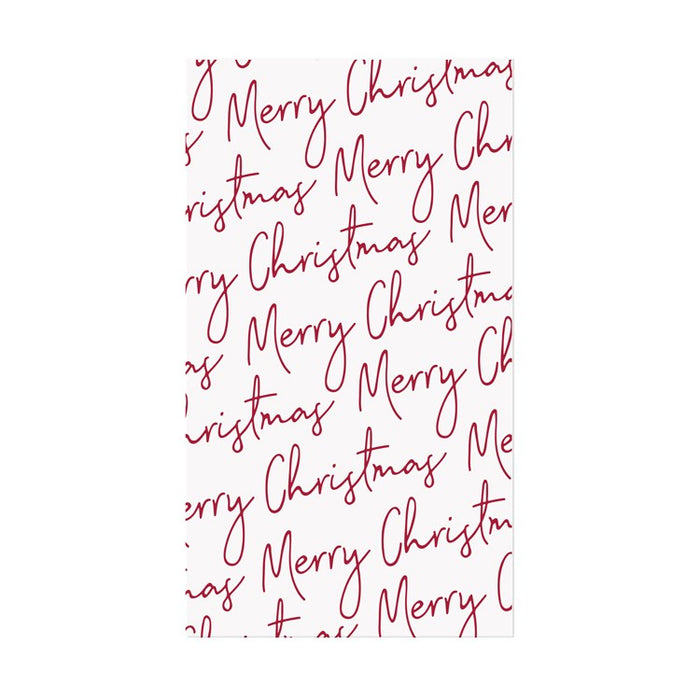 Merry Christmas
Merry Chr
ristmas
Merry Christmas Mer
rry Christmas
Merry Christma
as Merry Ch
hristmas
Merry Christmas Me
erry Christmas
Merry Christm
mas Merry C